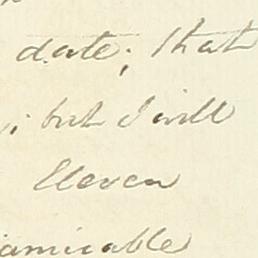 date; that
; but I will
Eleven
amicable